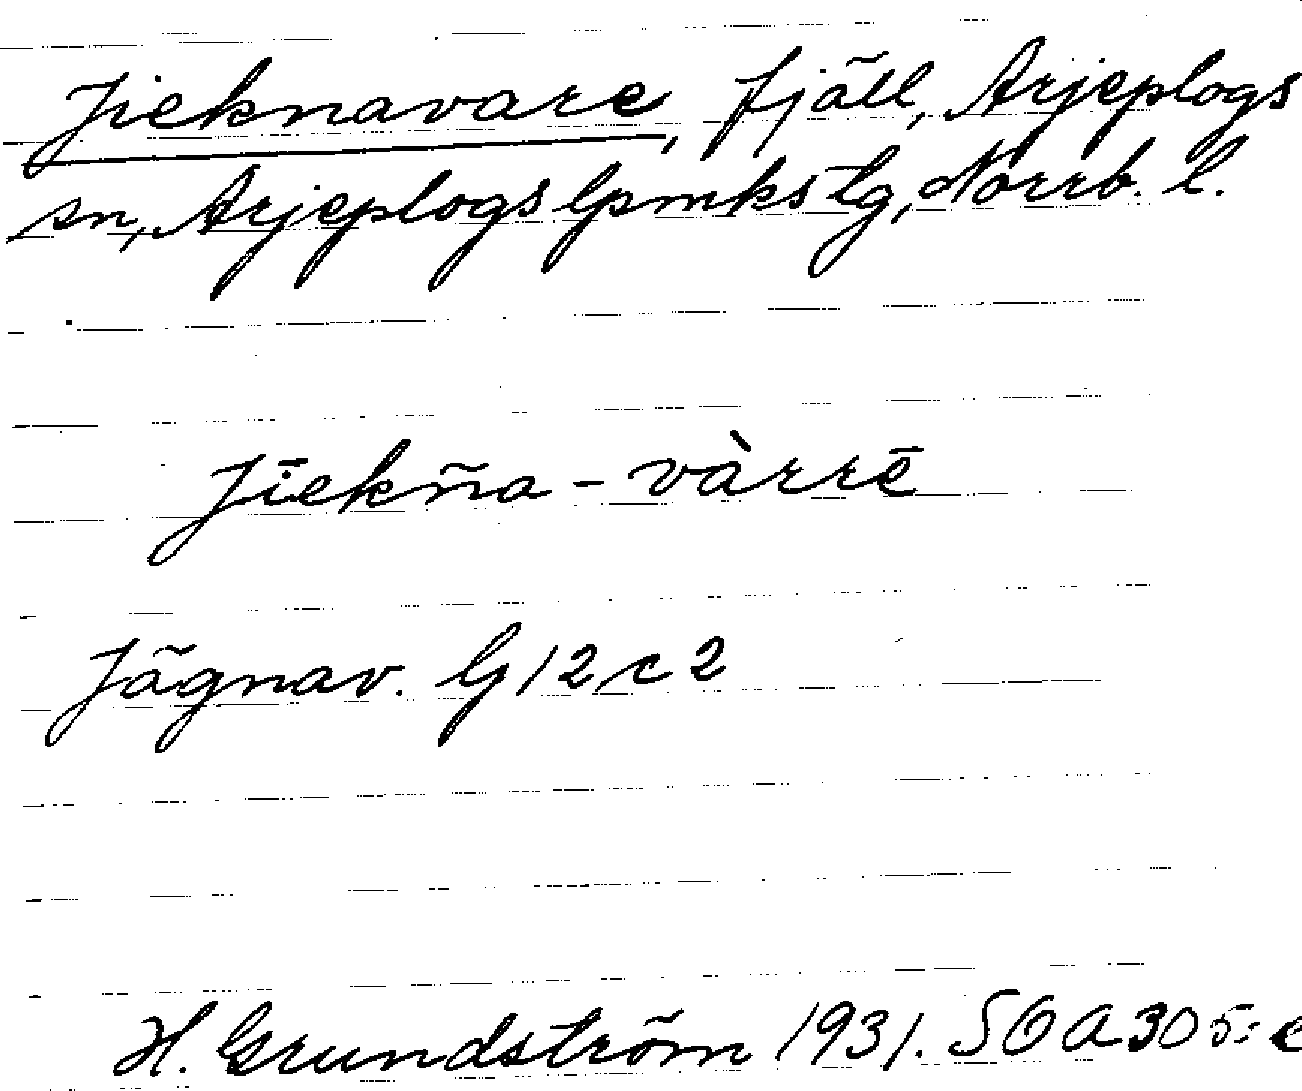 Jieknavare, fjäll, Arjeplogs
sn, Arjeplogs lpmks tg, Norrb. l.
Jīekña - vàrrē
Jägnav. G 12 c 2
H. Grundström 1931. SOA 305:e